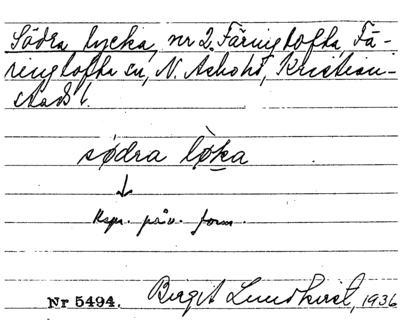 Södra lycka, nr 2, Färingtofta, Fä-
ringtofta sn, N. Åsbohd, Kristian-
stads l.
södra lo̱ka
↓
Uspr. påv. form.
Birgit Lundkvist, 1936
Nr 5494.